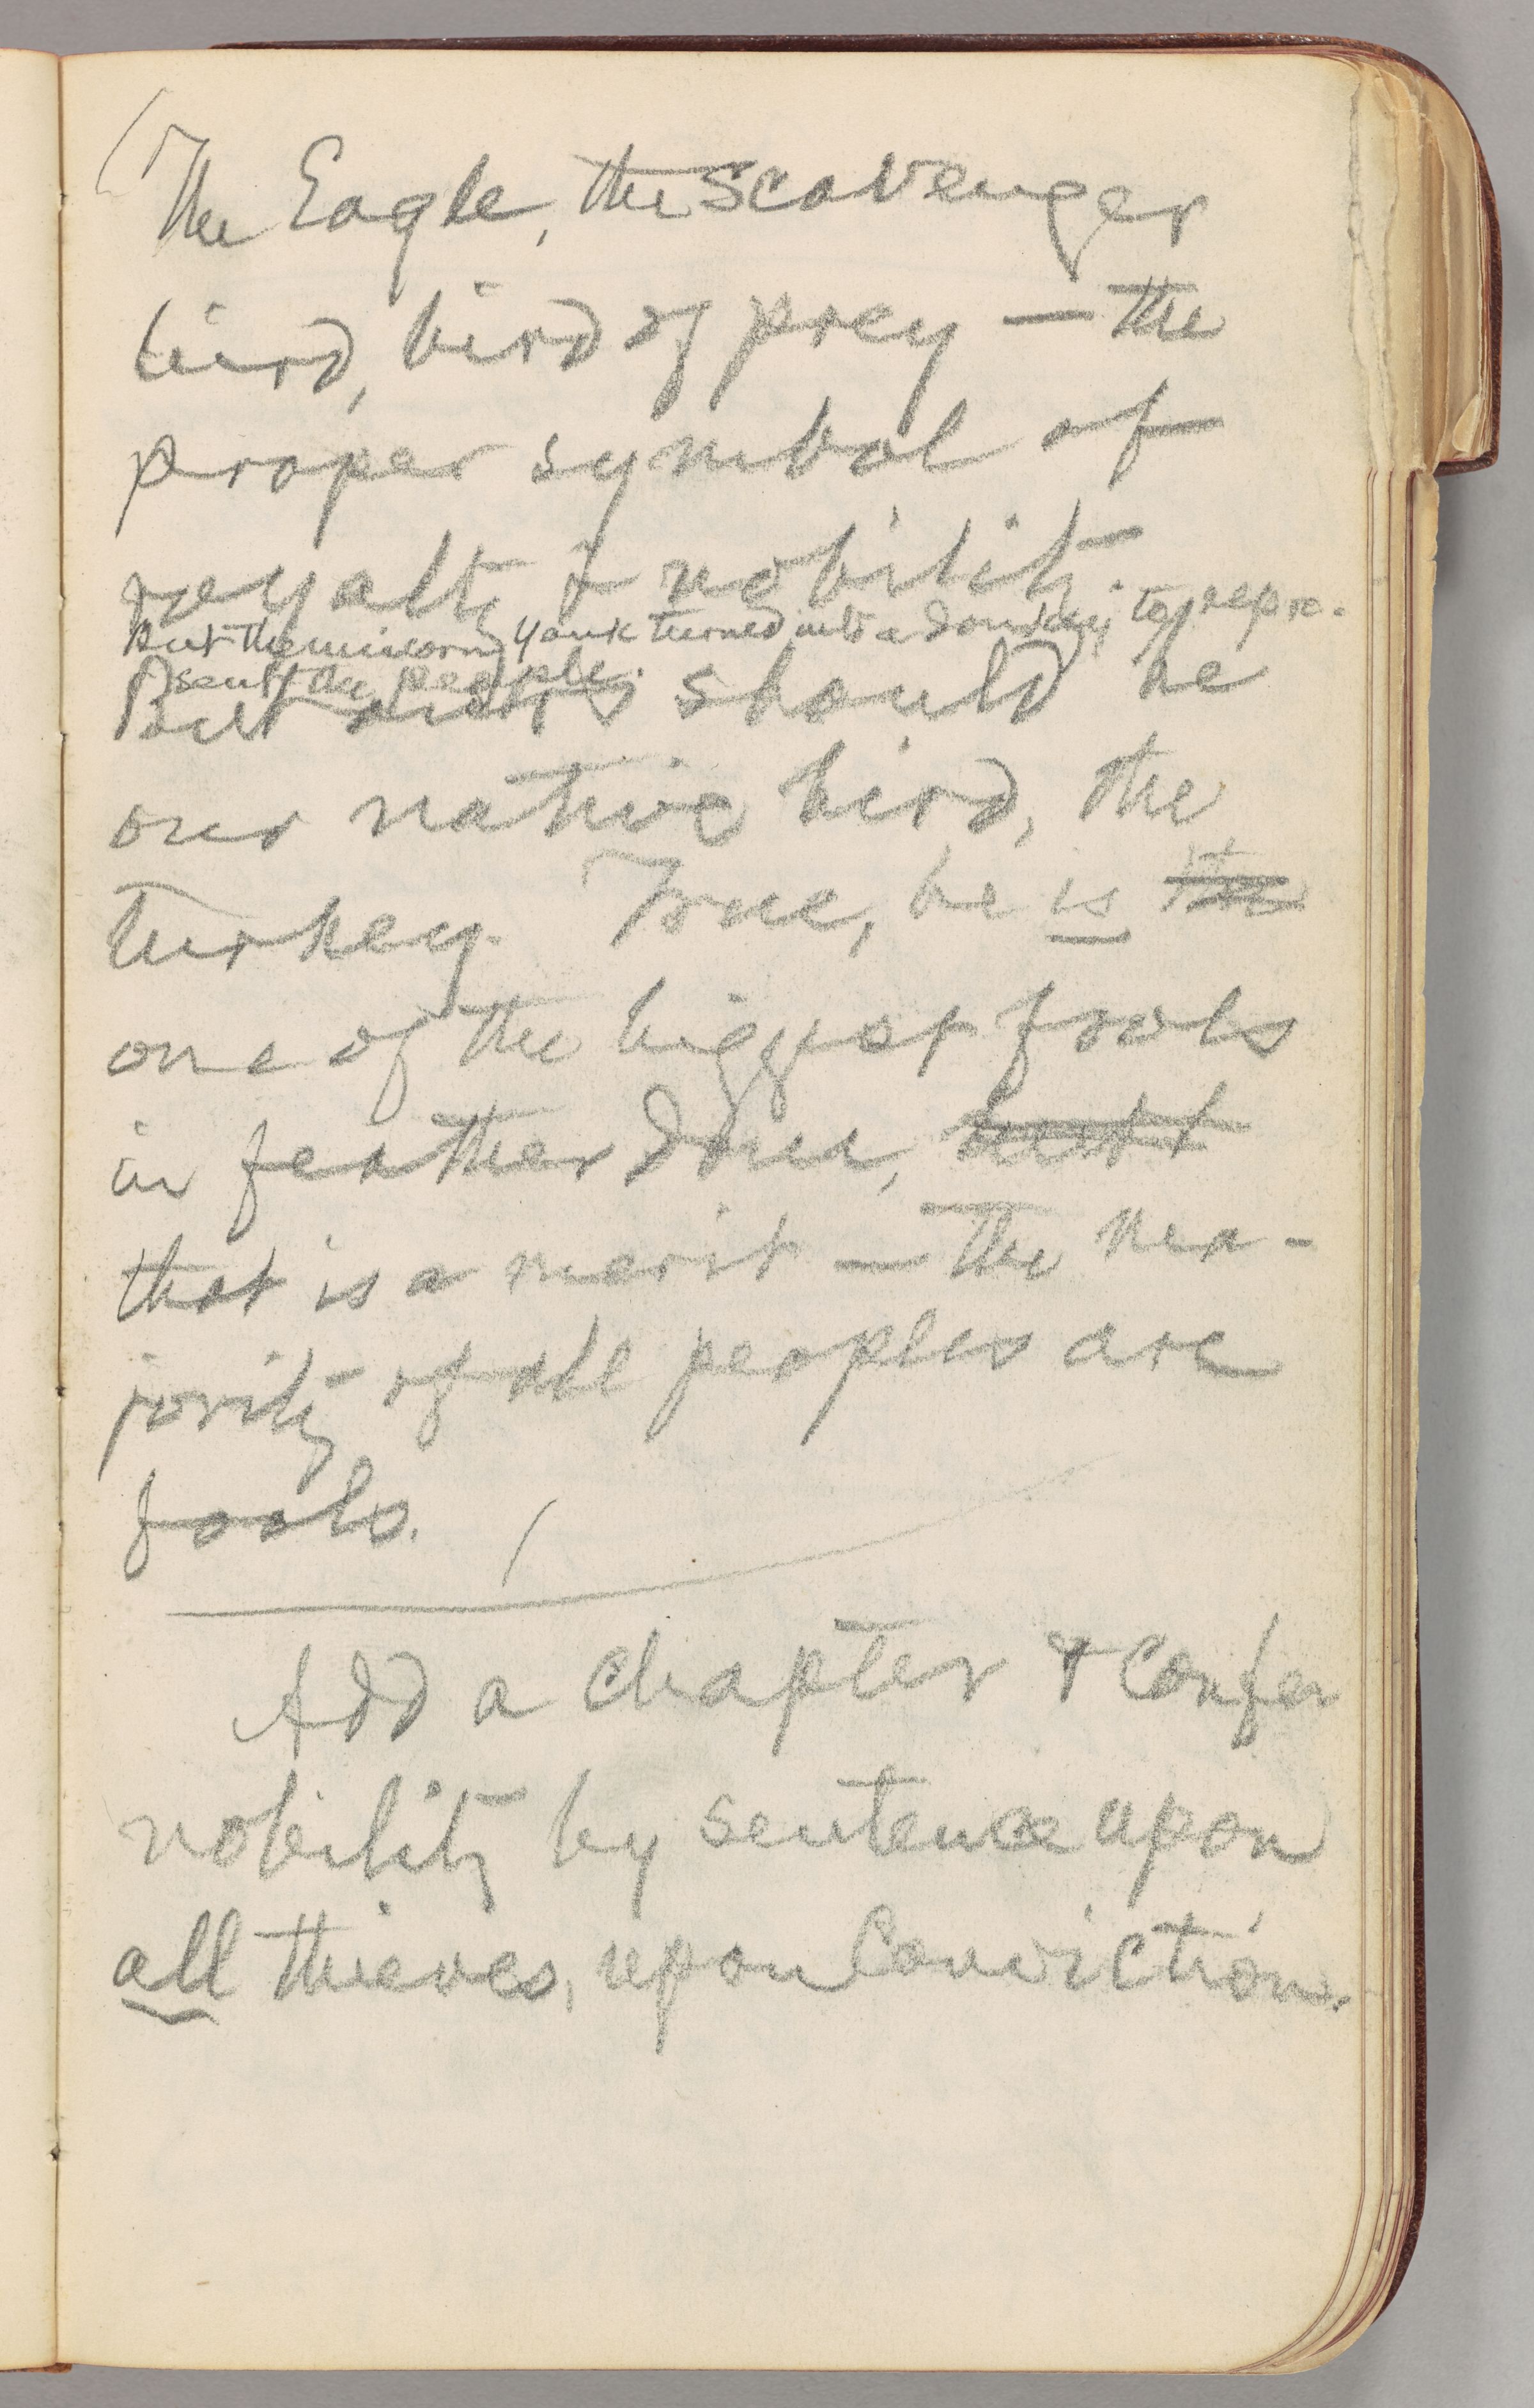 The Eagle, the scavenger
bird, bird of prey — the
proper symbol of
royalty & nobility.
But the unicorn, Yank turned into a donkey, to repre-
sent the people.
But ours should be
our native bird, the
turkey. True, he is the
one of the biggest fools
in featherdom, but t
that is a merit — the ma-
jority of all peoples are
fools.
Add a chapter & confer
nobility by sentence upon
all thieves, upon conviction.